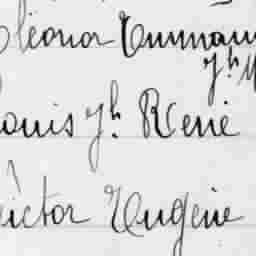 Eléonor Emman
Jh M
Louis Jh René
Victor Eugène